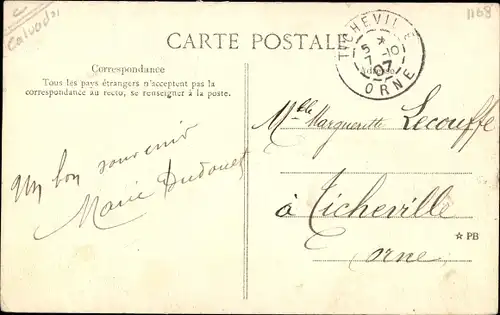 Calvados
1168
CARTE POSTALE
TICHEVILLE
5 * 
7 -10
07
ORNE
Adresse
Correspondance
Tous les pays étrangers n'acceptent pas la
correspondance au recto, se renseigner à la poste.
Un bon souvenir
Marie Dudouet
Melle Marguerite Lecouffe
à Ticheville
Orne
☆ PB